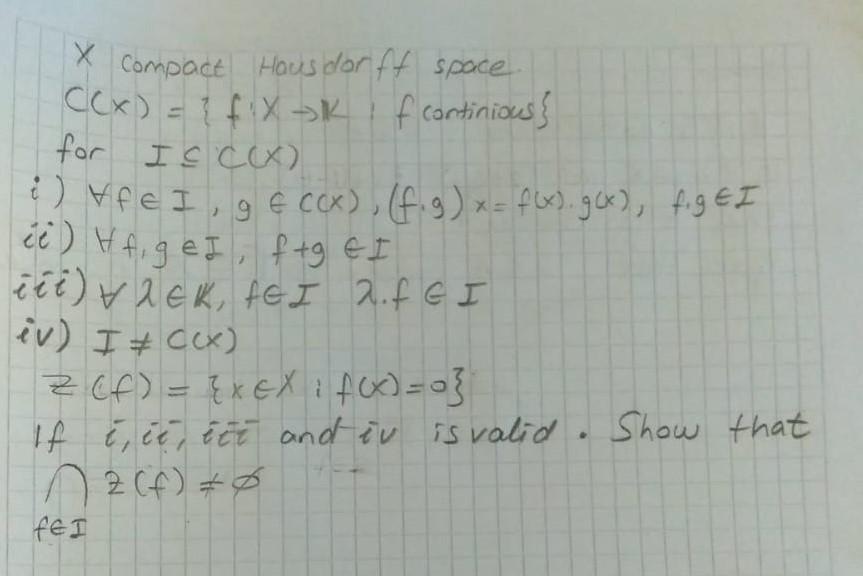 X Compact Housdorff space.
C(X) = { f: X → K ; f continious}
for I ⊆ C(X)
i) ∀f ∈ I, g ∈ C(X), (f.g) x = f(x).g(x), f.g ∈ I
ii) ∀f,g ∈ I, f+g ∈ I
iii) ∀ λ ∈ K, f ∈ I λ.f ∈ I
iv) I ≠ C(X)
Z (f) = {x ∈ X ; f(x)=0}
If i, ii, iii and iv is valid. Show that
⋂ Z(f) ≠ ∅
f∈I